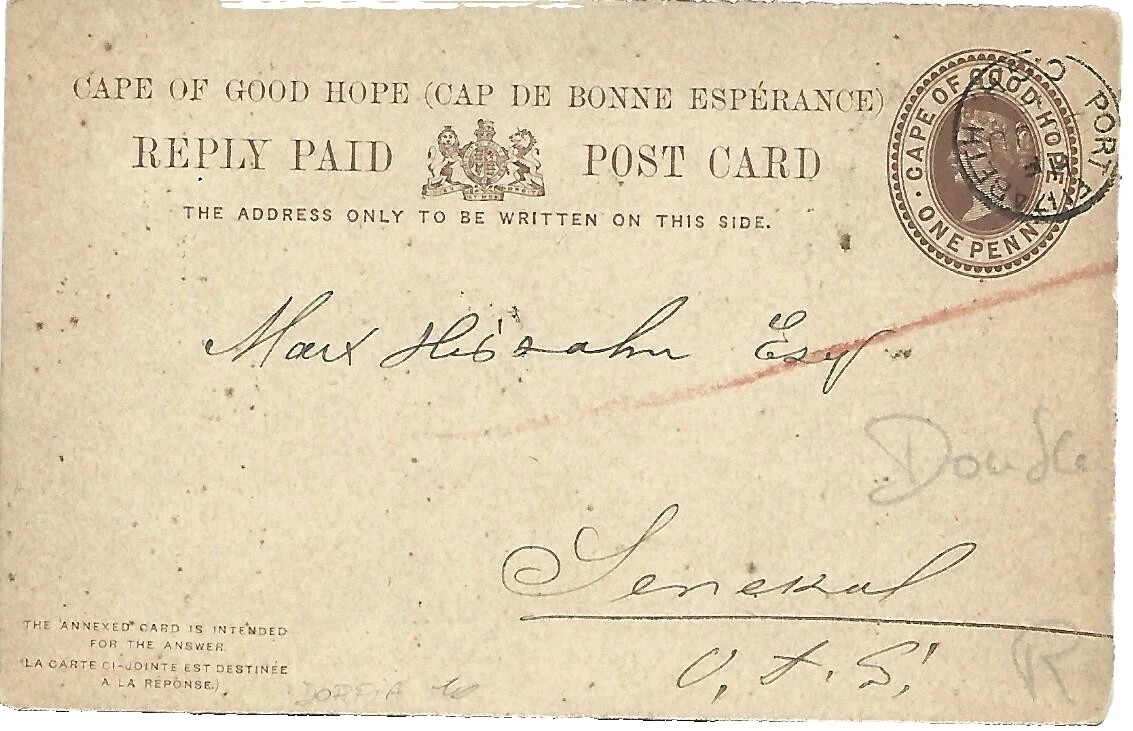 CAPE OF GOOD HOPE (CAP DE BONNE ESPÉRANCE)
REPLY PAID POST CARD
THE ADDRESS ONLY TO BE WRITTEN ON THIS SIDE.
CAPE OF GOOD HOPE
ONE PENNY
PORT
Max Esqr
Senekal
O. F. S.
THE ANNEXED CARD IS INTENDED
FOR THE ANSWER.
(LA CARTE CI-JOINTE EST DESTINÉE
A LA RÉPONSE.)
DOPPIA
R